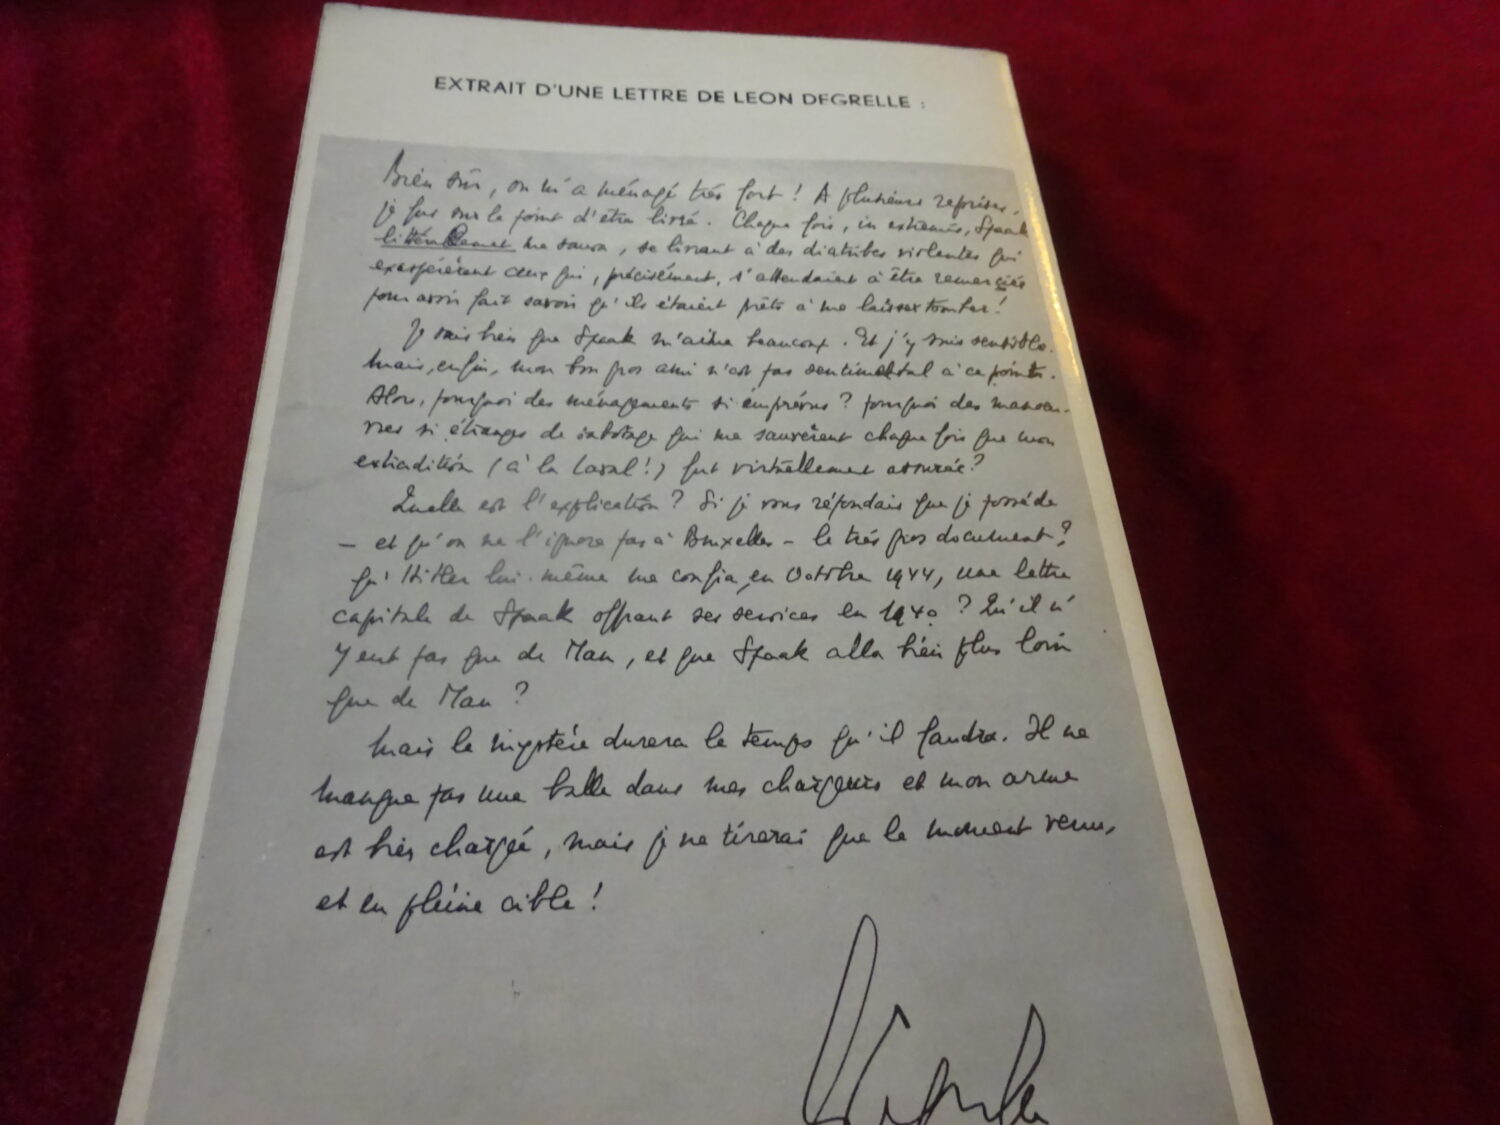 EXTRAIT D'UNE LETTRE DE LEON DEGRELLE :
Bien sûr, on m'a ménagé très fort ! A plusieurs reprises,
je fus sur le point d'être livré. Chaque fois, in extremis, Spaak
littéralement me sauva, se livrant à des diatribes violentes qui
exaspérèrent ceux qui, précisément, s'attendaient à être remerciés
pour avoir fait savoir qu'ils étaient prêts à me laisser tomber !
Je sais bien que Spaak m'aime beaucoup. Et j'y suis sensible.
Mais, enfin, mon bon gros ami n'est pas sentimental à ce point.
Alors, pourquoi des ménagements si imprévus ? Pourquoi des manoeu-
vres si étranges de sabotage qui me sauvèrent chaque fois que mon
extradition (à la Laval !) fut virtuellement assurée ?
Quelle est l'explication ? Si je vous répondais que je possède
– et qu'on ne l'ignore pas à Bruxelles – le très gros document,
qu'Hitler lui-même me confia en Octobre 1944, une lettre
capitale de Spaak offrant ses services en 1940 ? Qu'il n'
y eut pas que de Man, et que Spaak alla bien plus loin
que de Man ?
Mais le mystère durera le temps qu'il faudra. Il ne
manque pas une balle dans mes chargeurs et mon arme
est bien chargée, mais je ne tirerai que le moment venu,
et en pleine cible !